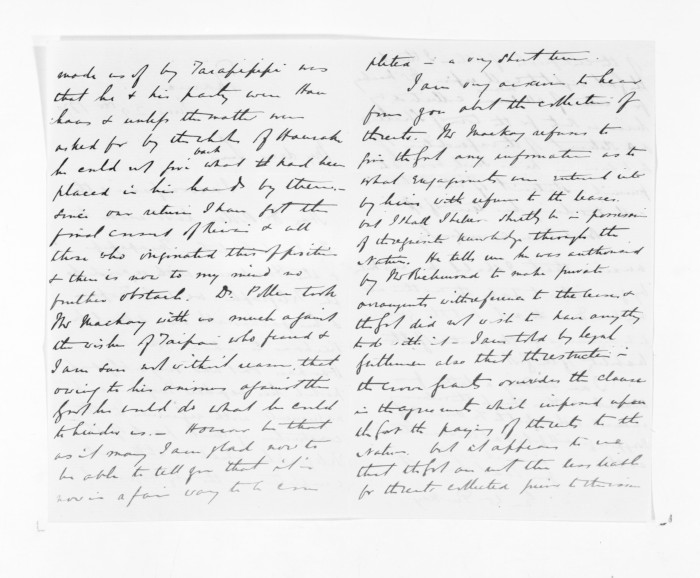 made use of by Tarapipipi was
that he & his party were Hau
haus & unless the matter were
asked for by the chiefs of Hauraki
he could not give back what had been
placed in his hands by them. –
Since our return I have got the
final consent of & all
those who originated this opposition
& there is now to my mind no
further obstacle. Dr. Pollen took
Mr Mackay with us much against
the wishes of Taipari who feared &
I am sure not without reason, that
owing to his animus against the
Govt he would do what he could
to hinder us. – However be that
as it may I am glad now to
be able to tell you that it is
now in a fair way to be com
pleted – in a very short time.
I am very anxious to hear
from you about the collection of
the rents. Mr Mackay refuses to
give the Govt any information as to
what engagements were entered into
by him with reference to the leases.
but I shall I believe shortly be in possession
of the requisite knowledge through the
Natives. He tells me he was authorised
by Mr Richmond to make private
arrangements with reference to the leases &
the Govt did not wish to have anything
to do with it – I am told by legal
gentlemen also that the restriction in
the crown grants overrides the clause
in the agreements which imposed upon
the Govt the paying of the rents to the
Natives. but it appears to me
that the Govt are not the less liable
for the rents collected prior to the